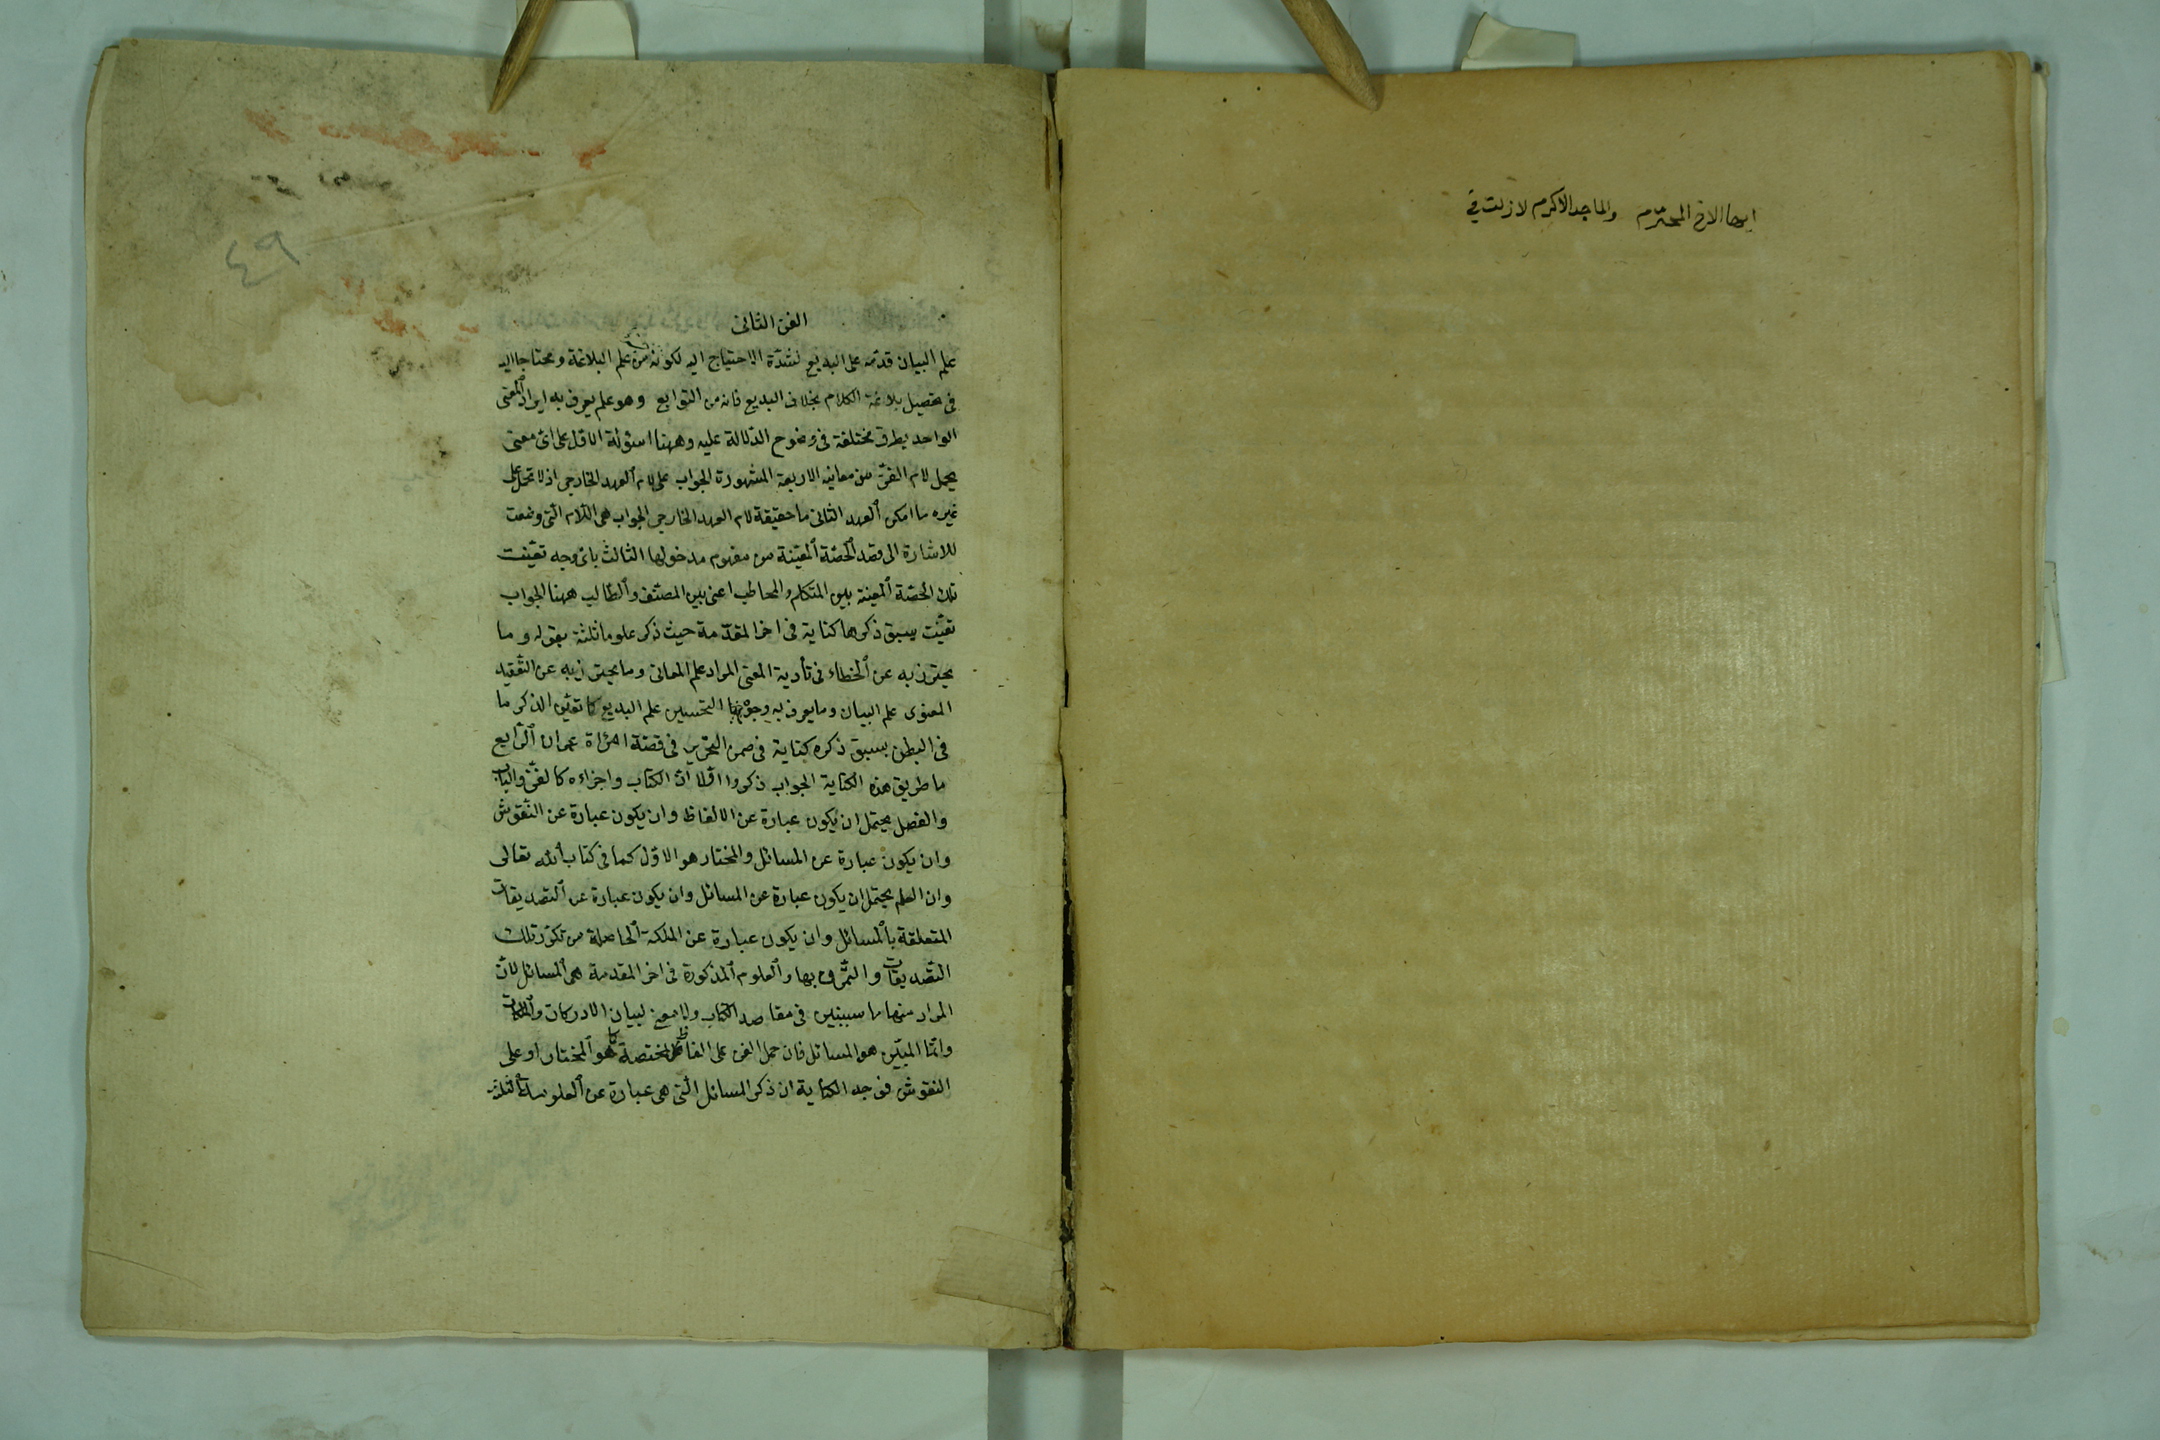 ايها الاخ المحترم والماجد الاكرم لا زلت في
٤٩
الفن الثانى
علم البيان قدمه على البديع لشدة الاحتياج اليه لكونه من علم البلاغة ومحتاجا اليه
فى تحصيل بلاغة الكلام بخلاف البديع فانه من التوابع وهو علم يعرف به ايراد المعنى
الواحد بطرق مختلفة فى وضوح الدلالة عليه وههنا اسئولة الاول على اى معنى
يحمل لام الفن من معانيه الاربعة المشهورة الجواب على لام العهد الخارجى اذ لا تحمل على
غيره ما امكن العهد الثانى ما حقيقة لام العهد الخارجى الجواب هى اللام التى وضعت
للاشارة الى قصد الحصّة المعيّنة من مفهوم مدخولها الثالث باى وجه تعيّنت
تلك الحصّة المعينة بين المتكلم والمخاطب اعنى بين المصنّف والطالب ههنا الجواب
تعيّنت بسبق ذكرها كناية فى اخر المقدّمة حيث ذكر علوما ثلثة بقوله وما
يحترز به عن الخطاء فى تأدية المعنى المراد علم المعانى وما يحترز به عن التعقيد
المعنوى علم البيان وما يعرف به وجوه التحسين علم البديع كما تعيّن الذكر ما
فى البطن بسبق ذكره كناية فى ضمن التحرير فى قصّة امرأة عمران الرّابع
ما طريق هذه الكناية الجواب ذكروا اوّلا انّ الكتاب واجزاءه كالفنّ والباب
والفصل يحتمل ان يكون عبارة عن الالفاظ وان يكون عبارة عن النّقوش
وان يكون عبارة عن المسائل والمختار هو الاوّل كما فى كتاب الله تعالى
وان العلم يحتمل ان يكون عبارة عن المسائل وان يكون عبارة عن التصديقات
المتعلقة بالمسائل وان يكون عبارة عن الملكة الحاصلة من تكرّر تلك
التصديقات والتمرّن بها والعلوم المذكورة فى اخر المقدمة هى المسائل لانّ
المراد منها ما سيبيّن فى مقاصد الكتاب ولا معنى لبيان الادركات والملكات
وانّما المبيّن هو المسائل فان حمل الفن على الفاظ المختصة كما هو المختار او على
النقوش فوجه الكناية ان ذكر المسائل التى هى عبارة عن العلوم الثلثة